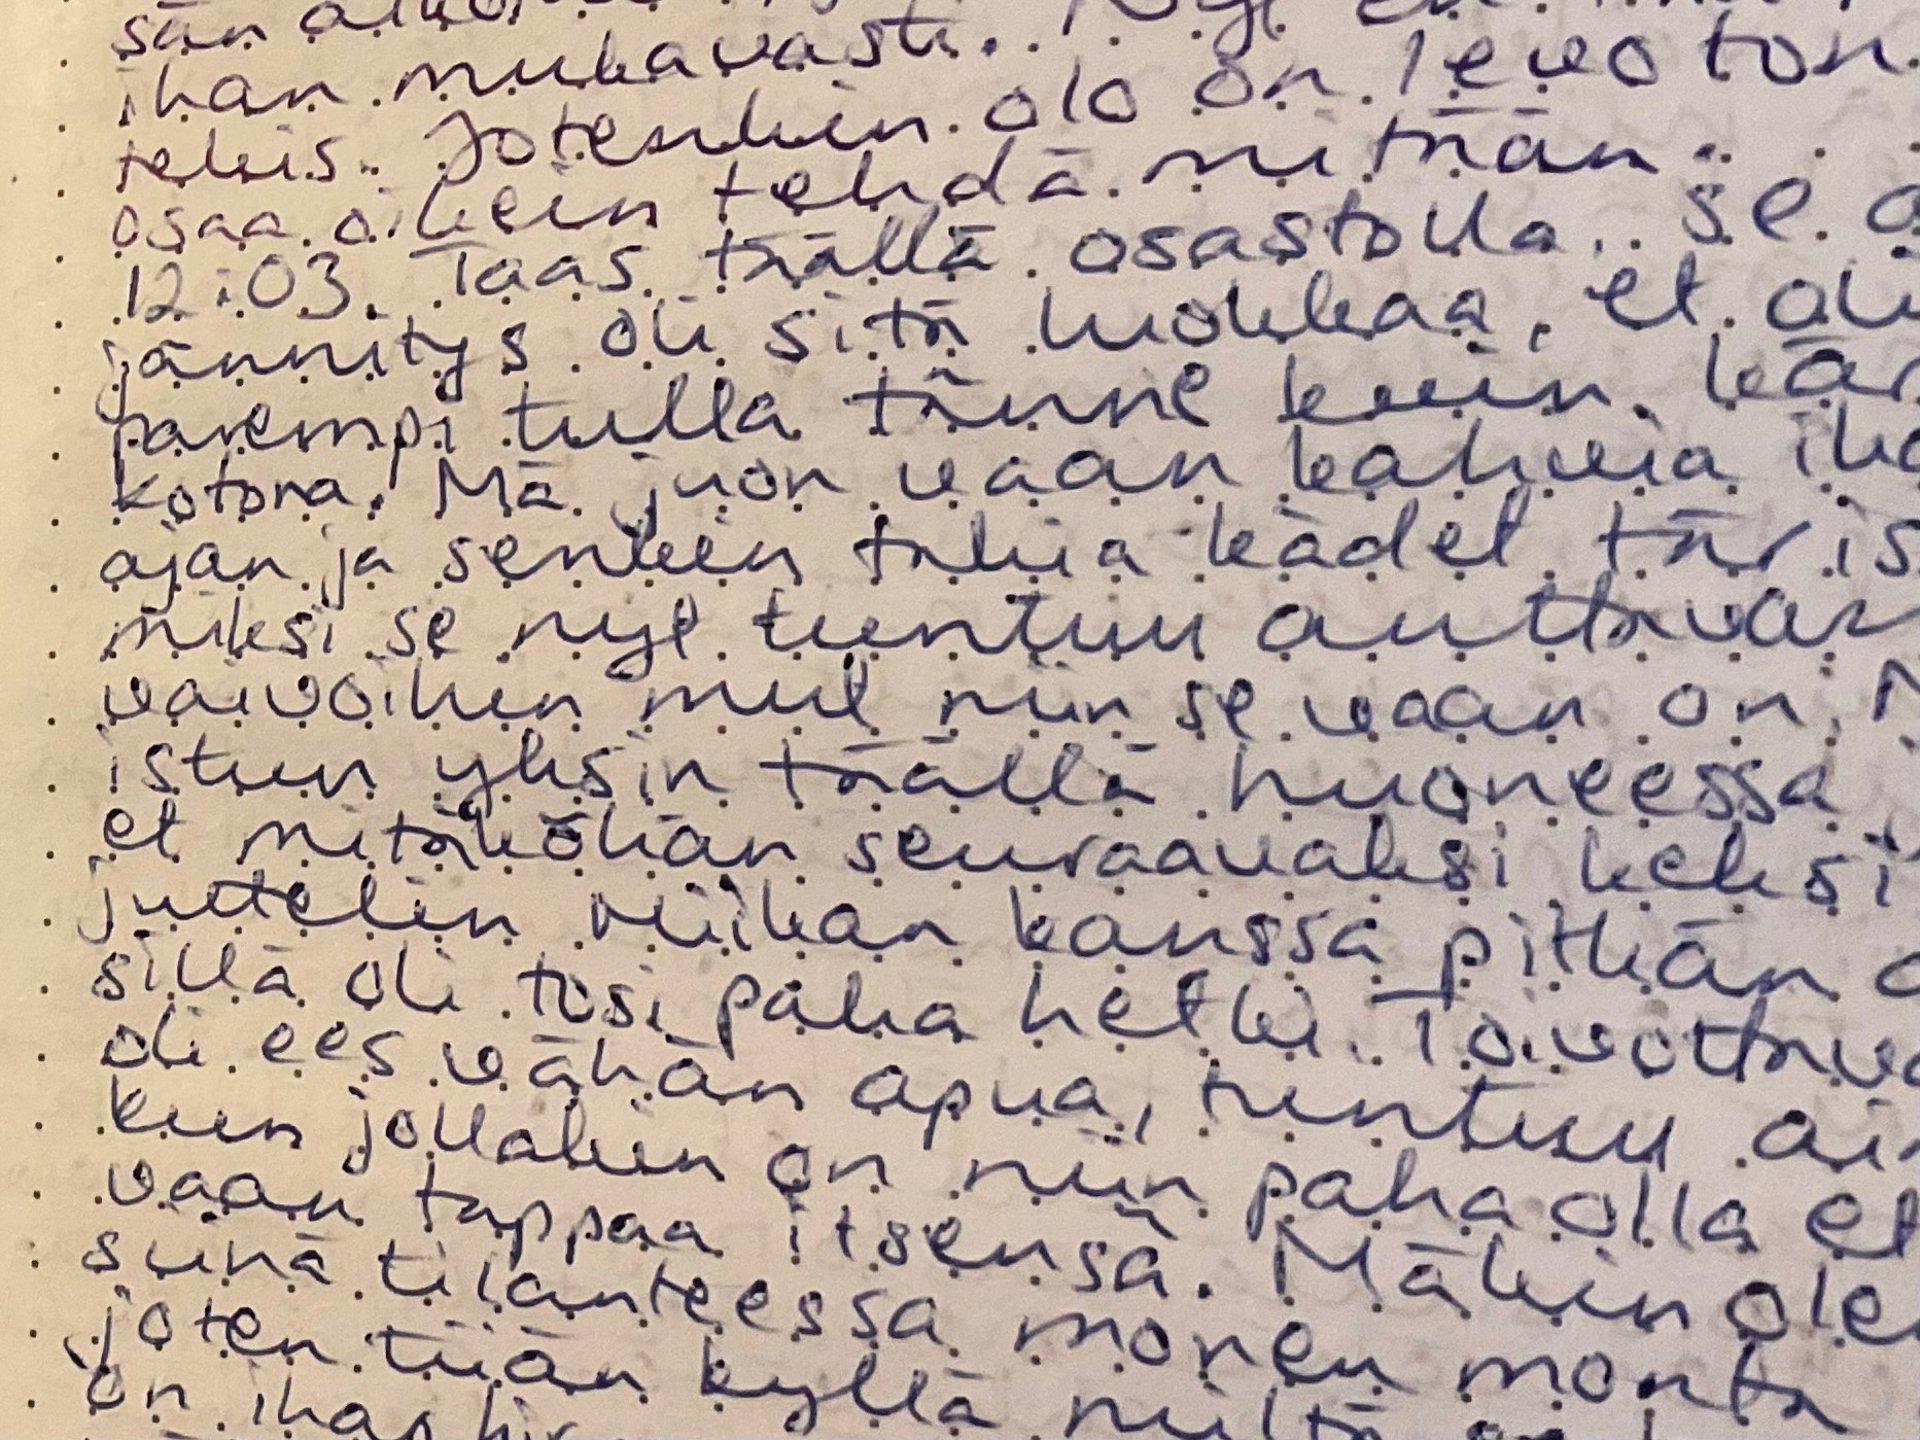 sän
ihan mukavasti. Nyt en
tekis. Jotenkin olo on levoton
osaa oikein tehdä mitään.
12:03. Taas täällä osastolla. Se
jännitys oli sitä luokkaa, et oli
parempi tulla tänne kuin kär
kotona. Mä juon vaan kahvia iha
ajan ja senkin takia kädet täris
miksi se nyt tuntuu auttavan
vaivoihin mut niin se vaan on. M
istun yksin täällä huoneessa
et mitäköhän seuraavaksi keksi
juttelin Miikan kanssa pitkän a
sillä oli tosi paha hetki. Toivottava
oli ees vähän apua, tuntuu ai
kun jollakin on niin paha olla et
vaan tappaa itsensä. Mäkin ole
siinä tilanteessa monen monta
joten tiiän kyllä miltä se
on ihan